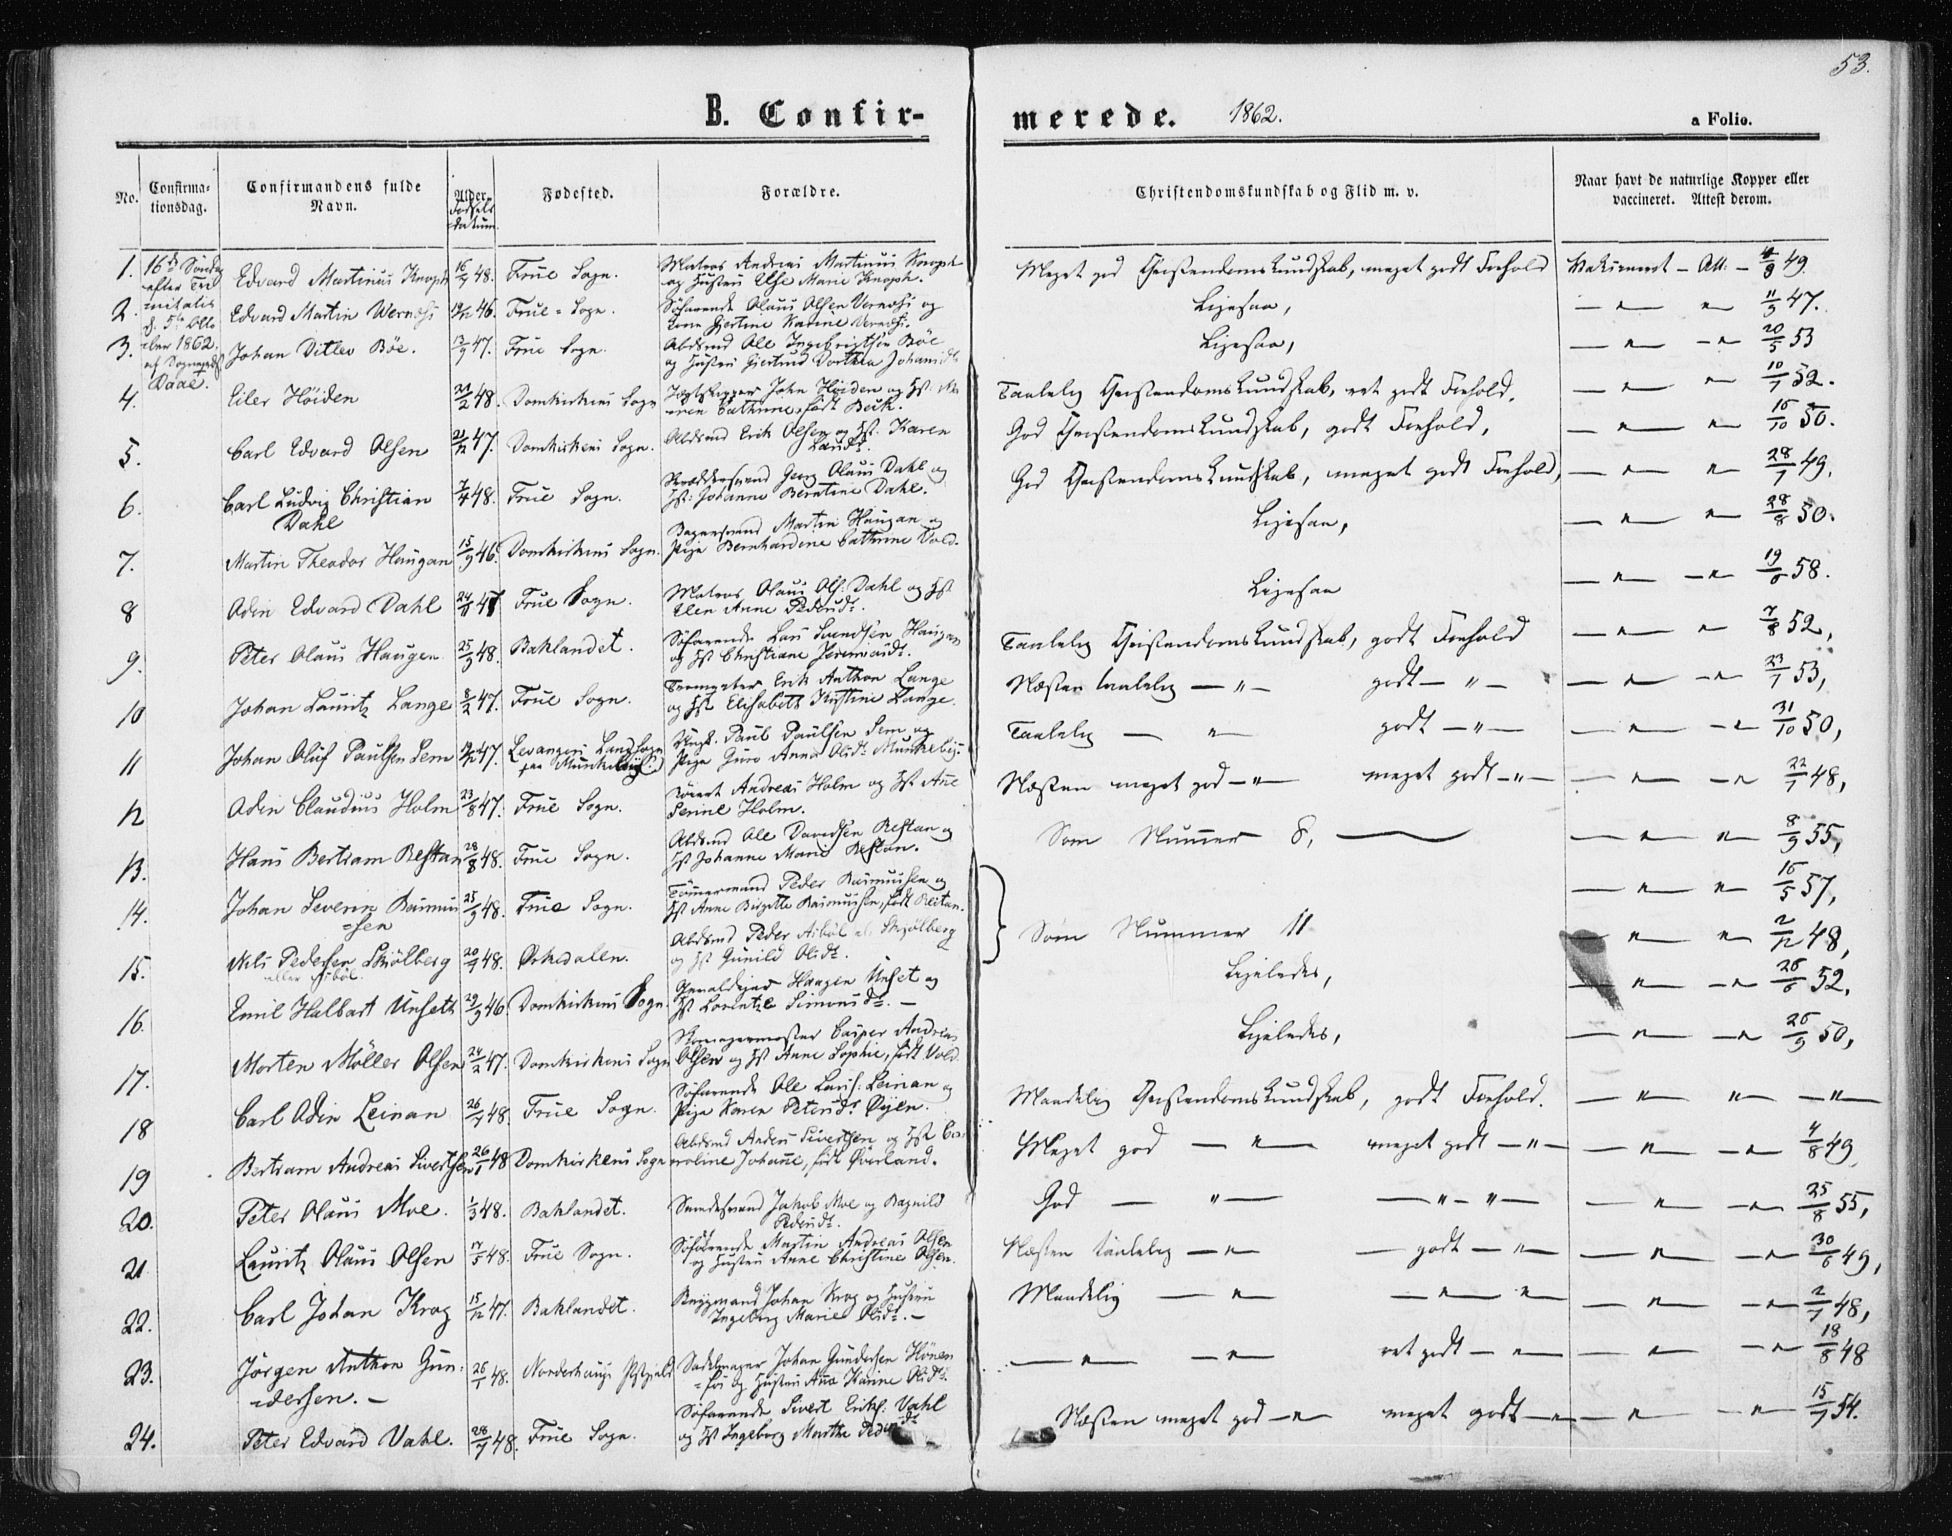 53.
B. Confirmerede. 1862. a Folio.
No. Confirmationsdag. Confirmandens fulde Navn. Alder. Fødsels datum. Fødested. Forældre. Christendomskundskab og Flid m. v. Naar havt de naturlige Kopper eller vaccineret. Attest derom.
16de Søndag
efter Tri
nitatis
d. 5te Octo
ber 1862.
af Sognepræst
Daae.
1. Edvard Martinus Knoph 16/4 48. Frue Sogn. Matros Andreas Martinus Knoph
og Hustru Else Marie Knoph. Meget god Christendomskundskab, meget godt Forhold Vakcineret - Att: - 4/9 49.
2. Edvard Martin Wernohs 46. Frue Sogn. Søfarende Olaus Olsen Vernohs og
Kone Gjertine Karine Vernohs. Ligesaa, - " - " 11/9 47.
3. Johan Ditlev Bøe. 13/9 47. Frue Sogn. Arbdsmd Ole Ingebrigtsen Böe
og Hustru Gjertrud Dorthea Johansdt. Ligesaa, - " - " 20/5 53
4. Eiler Höiden 21/2 48. Domkirkens Sogn Jagtskipper John Höiden og Hst.
Cathrine, født Beck. Taalelig Christendomskundskab, ret godt Forhold. - " - " 10/7 52.
5. Carl Edvard Olsen 21/12 47. Domkirkens Sogn. Arbdsmd Erik Olsen og Hst. Karen
Larsdt. God Christendomskundskab, godt Forhold, - " - " 16/10 50.
6. Carl Ludvig Christian
Dahl 7/4 48. Frue Sogn. Skræddersvend Georg Olaus Dahl og
Hst: Johanne Berntine Dahl. God Christendomskundskab, meget godt Forhold, - " - " 28/7 49.
7. Martin Theodor Haugan 15/9 46. Domkirkens Sogn. Bagersvend Martin Haugan og
Pige Bernhardine Cathrine Vold. Ligesaa, - " - " 28/8 50.
8 Adin Edvard Dahl 24/8 47 Frue Sogn. Matros Olaus Ols: Dahl og Hst
Elen Anne Pedersdt. Ligesaa - " - " 19/6 58.
9. Peter Olaus Haugen 25/9 48. Baklandet. Søfarende Lars Svendsen Haugen
og Hst Christiane Jeremiasdt. Taalelig Christendomskundskab, godt Forhold - " - " 7/8 52,
10 Johan Lauritz Lange 8/2 47. Frue Sogn. Erik Anthon Lange
og Hst Elisabeth Kristine Lange. Næsten taalelig - " - godt - " - - " - " 23/7 53,
11 Johan Oluf Paulsen Sem 47. Levangers Landsogn
paa Munkebÿe. Ungk. Paul Paulsen Sem og
Pige Guro Anna Olsdt Munkebÿ. Taalelig - " godt - " - - " - " 31/10 50,
12 Adin Claudius Holm 23/8 47. Frue Sogn. Andreas Holm og Hst Ane
Serine Holm. Næsten meget god - " - meget godt - " - - " - " 22/7 48,
13. Hans Bertram Restan 28/8 48. Frue Sogn. Arbdsmd Ole Davidsen Restan og
Hst Johanne Marie Restan. Som Nummer 8, - " - " 8/9 55,
14. Johan Severin Rasmus
=sen 25/9 48. Frue Sogn. Tømmermand Peder Rasmussen og
Hst Anne Birgitte Rasmussen, født Reitan. - " - " 16/5 57,
15. Nils Pedersen Skjölberg
eller Aisböl. 20/7 48. Orkedalen. Arbdsmd Peder Aisböl el. Skjølberg
og Hst Gunild Olsdt. Som Nummer 11 - " - " 2/12 48,
16. Emil Halbart Unseth 29/9 46. Domkirkens Sogn. Haagen Unset og
Hst Lorentze Simonsdt. - Ligeledes, - " - " 26/6 52,
17. Morten Möller Olsen 24/2 47. Domkirkens Sogn Skomagermester Casper Andreas
Olsen og Hst Anne Sophie, født Vold. Ligeledes, - " - " 26/9 50,
18 Carl Adin Leinan 26/4 48. Frue Sogn. Søfarende Ole Lars: Leinan og
Pige Karen Petersdt Øyen. Maadelig Christendomskundskab, godt Forhold. - " - " - "
19 Bertram Andreas Sivertsen 26/1 48 Domkirkens Sogn Arbdsmd Anders Sivertsen og Hst Ca=
roline Johanne, født Øverland. Meget god - " - meget godt - " - - " - " 4/8 49,
20. Peter Olaus Moe. 1/3 48. Baklandet. Smedesvend Jakob Moe og Ragnild
Pedersdt. God - " - - " - " - - " - " 25/8 55,
21 Lauritz Olaus Olsen 17/5 48. Frue Sogn. Søfarende Martin Andreas Olsen
og Hustru Anne Christine Olsen. Næsten taalelig - " - godt - " - " - " 30/6 49,
22. Carl Johan Krog 15/12 47. Baklandet. Johan Krog og Hustru
Ingeborg Marie Olsdt. - Maadelig - " - " " - " - " 2/7 48,
23. Jörgen Anthon Gun=
dersen. - 26/1 48. Norderhaugs Pstgjeld Sadelmager Johan Gundersen Hönen
=fos og Hustru Anne Karine Olsdt. - " - " ret godt - " - " - " 18/8 48
24. Peter Edvard Vahl. 28/7 48. Frue Sogn. Søfarende Sivert Eriks: Vahl
og Hst Ingeborg Marthe Pedersdt Næsten meget god - " meget godt - " - " - " 15/7 54.